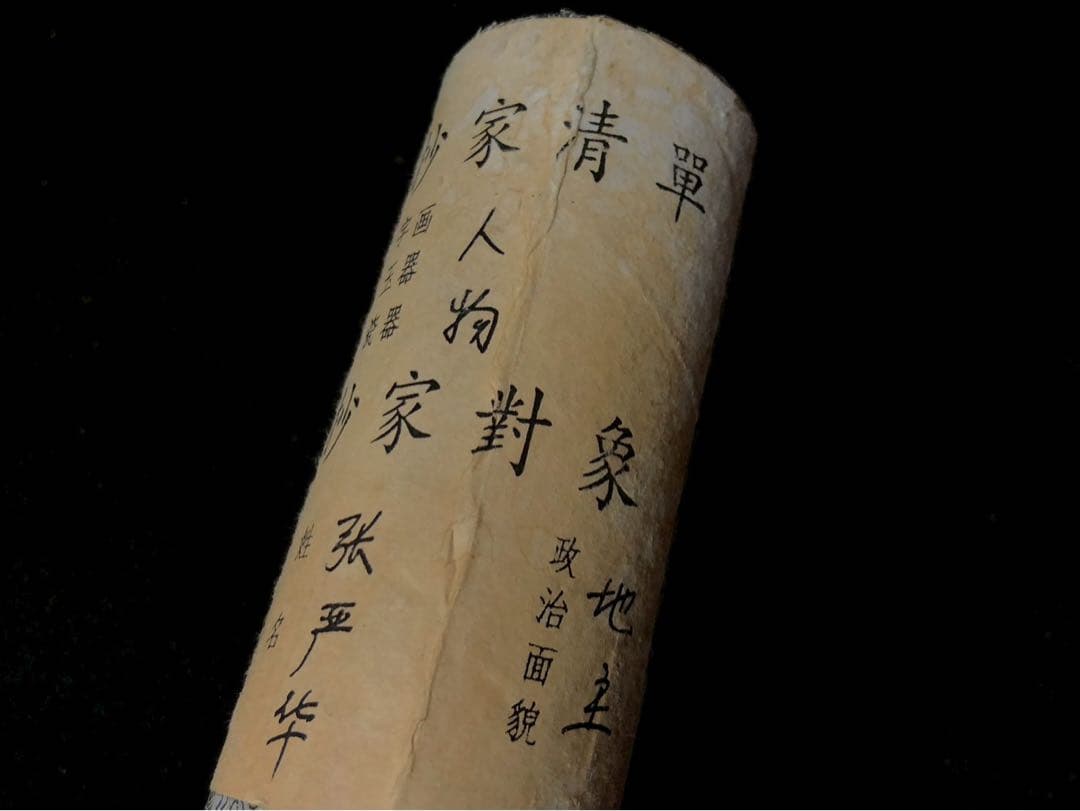 抄家清單
字画
玉器
瓷器
人物
抄家對象
姓名
张严华
政治面貌
地主